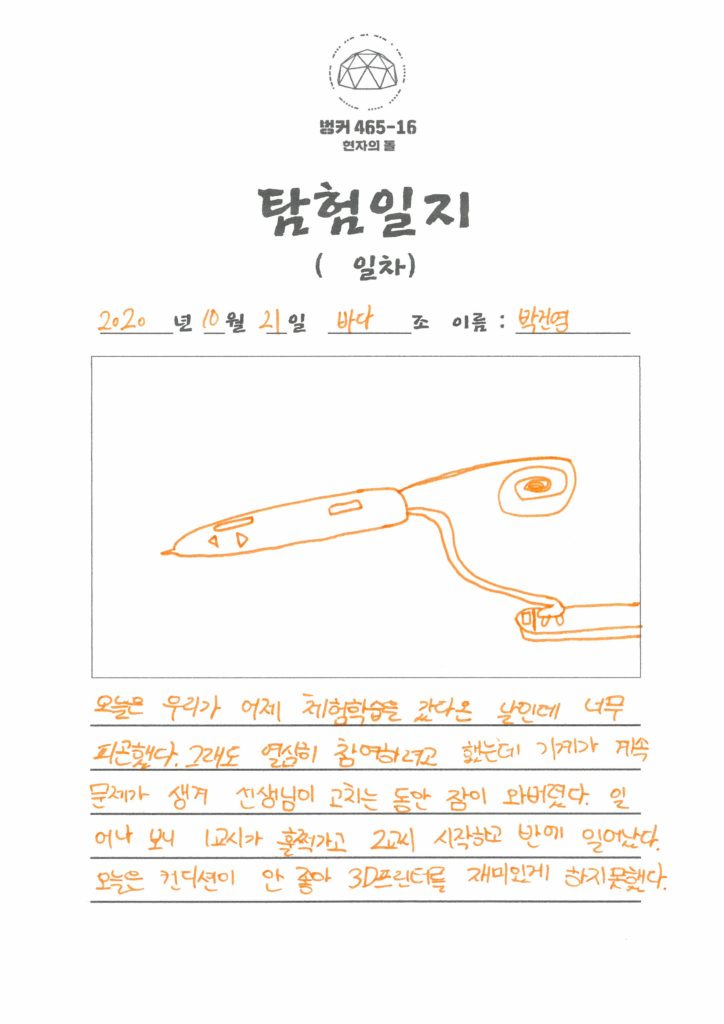 벙커 465-16
현자의 돌
탐험일지
( 일차)
2020 년 10 월 21 일 바다 조 이름 : 박건영
오늘은 우리가 어제 체험학습을 갔다온 날인데 너무
피곤했다. 그래도 열심히 참여하려고 했는데 기계가 계속
문제가 생겨 선생님이 고치는 동안 잠이 와버렸다. 일
어나 보니 1교시가 훌쩍가고 2교시 시작하고 반에 일어났다.
오늘은 컨디션이 안 좋아 3D프린터를 재미있게 하지못했다.